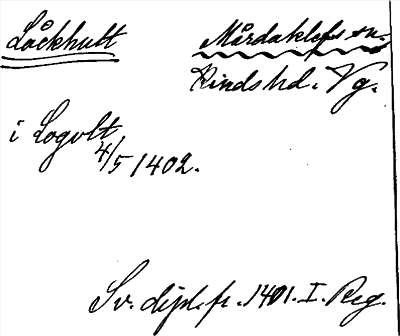 Låckhult
Mårdaklefs sn.
Kinds hd. Vg.
i Logolt
4/5 1402.
Sv. dipl. fr. 1401. I. Reg.